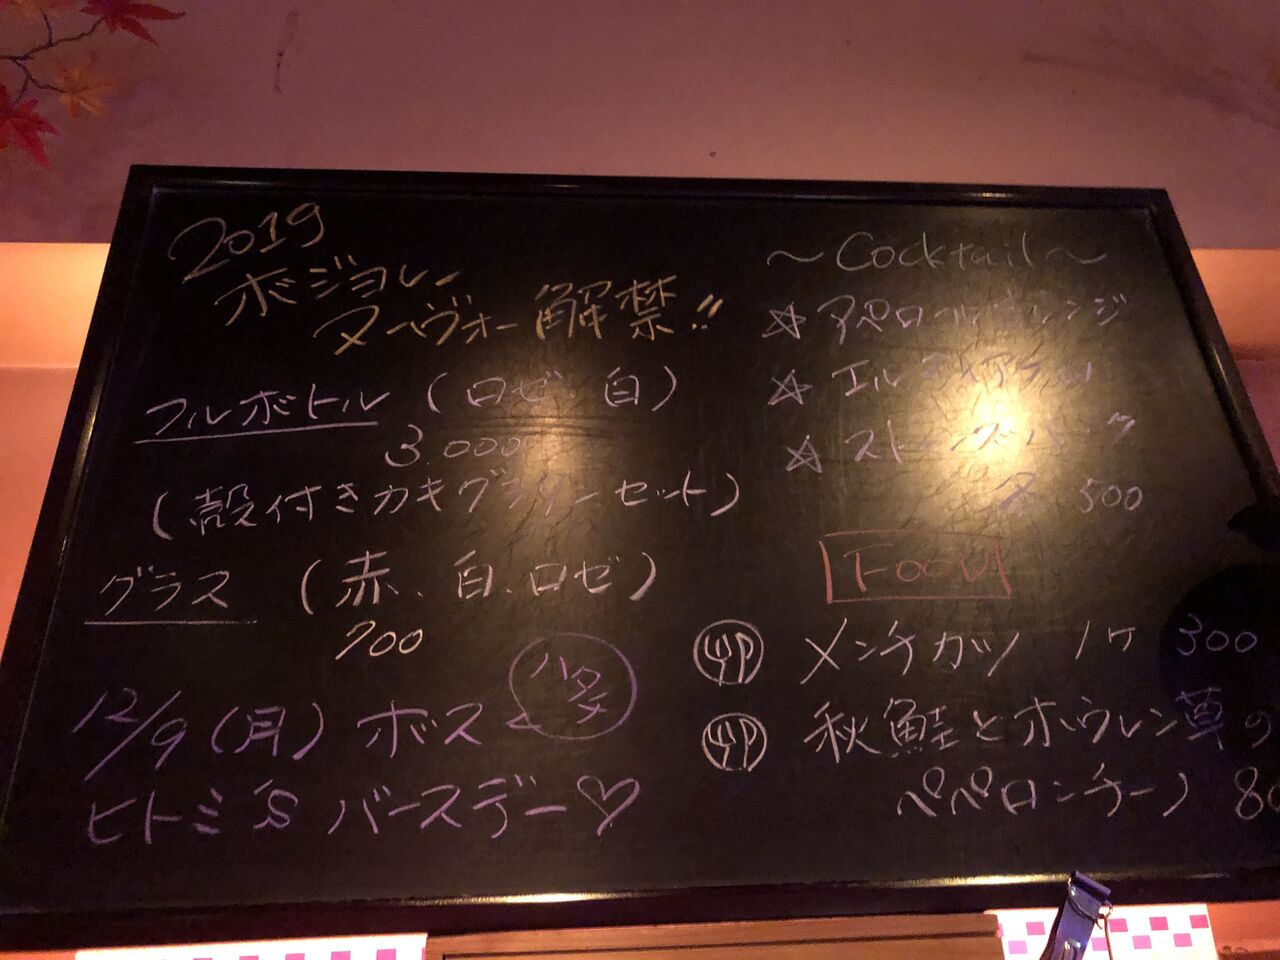 2019
ボジョレー
ヌーヴォー解禁!!
フルボトル (ロゼ、白)
3.000
(殻付きカキグラタンセット)
グラス (赤、白、ロゼ)
700
12/9(月) ボス
ヒトミ'S バースデー♡
~Cocktail~
☆ アペロールオレンジ
☆ エルディアブロ
☆
各 500
FOOD
メンチカツ 1ケ 300
秋鮭とホウレン草の
ペペロンチーノ